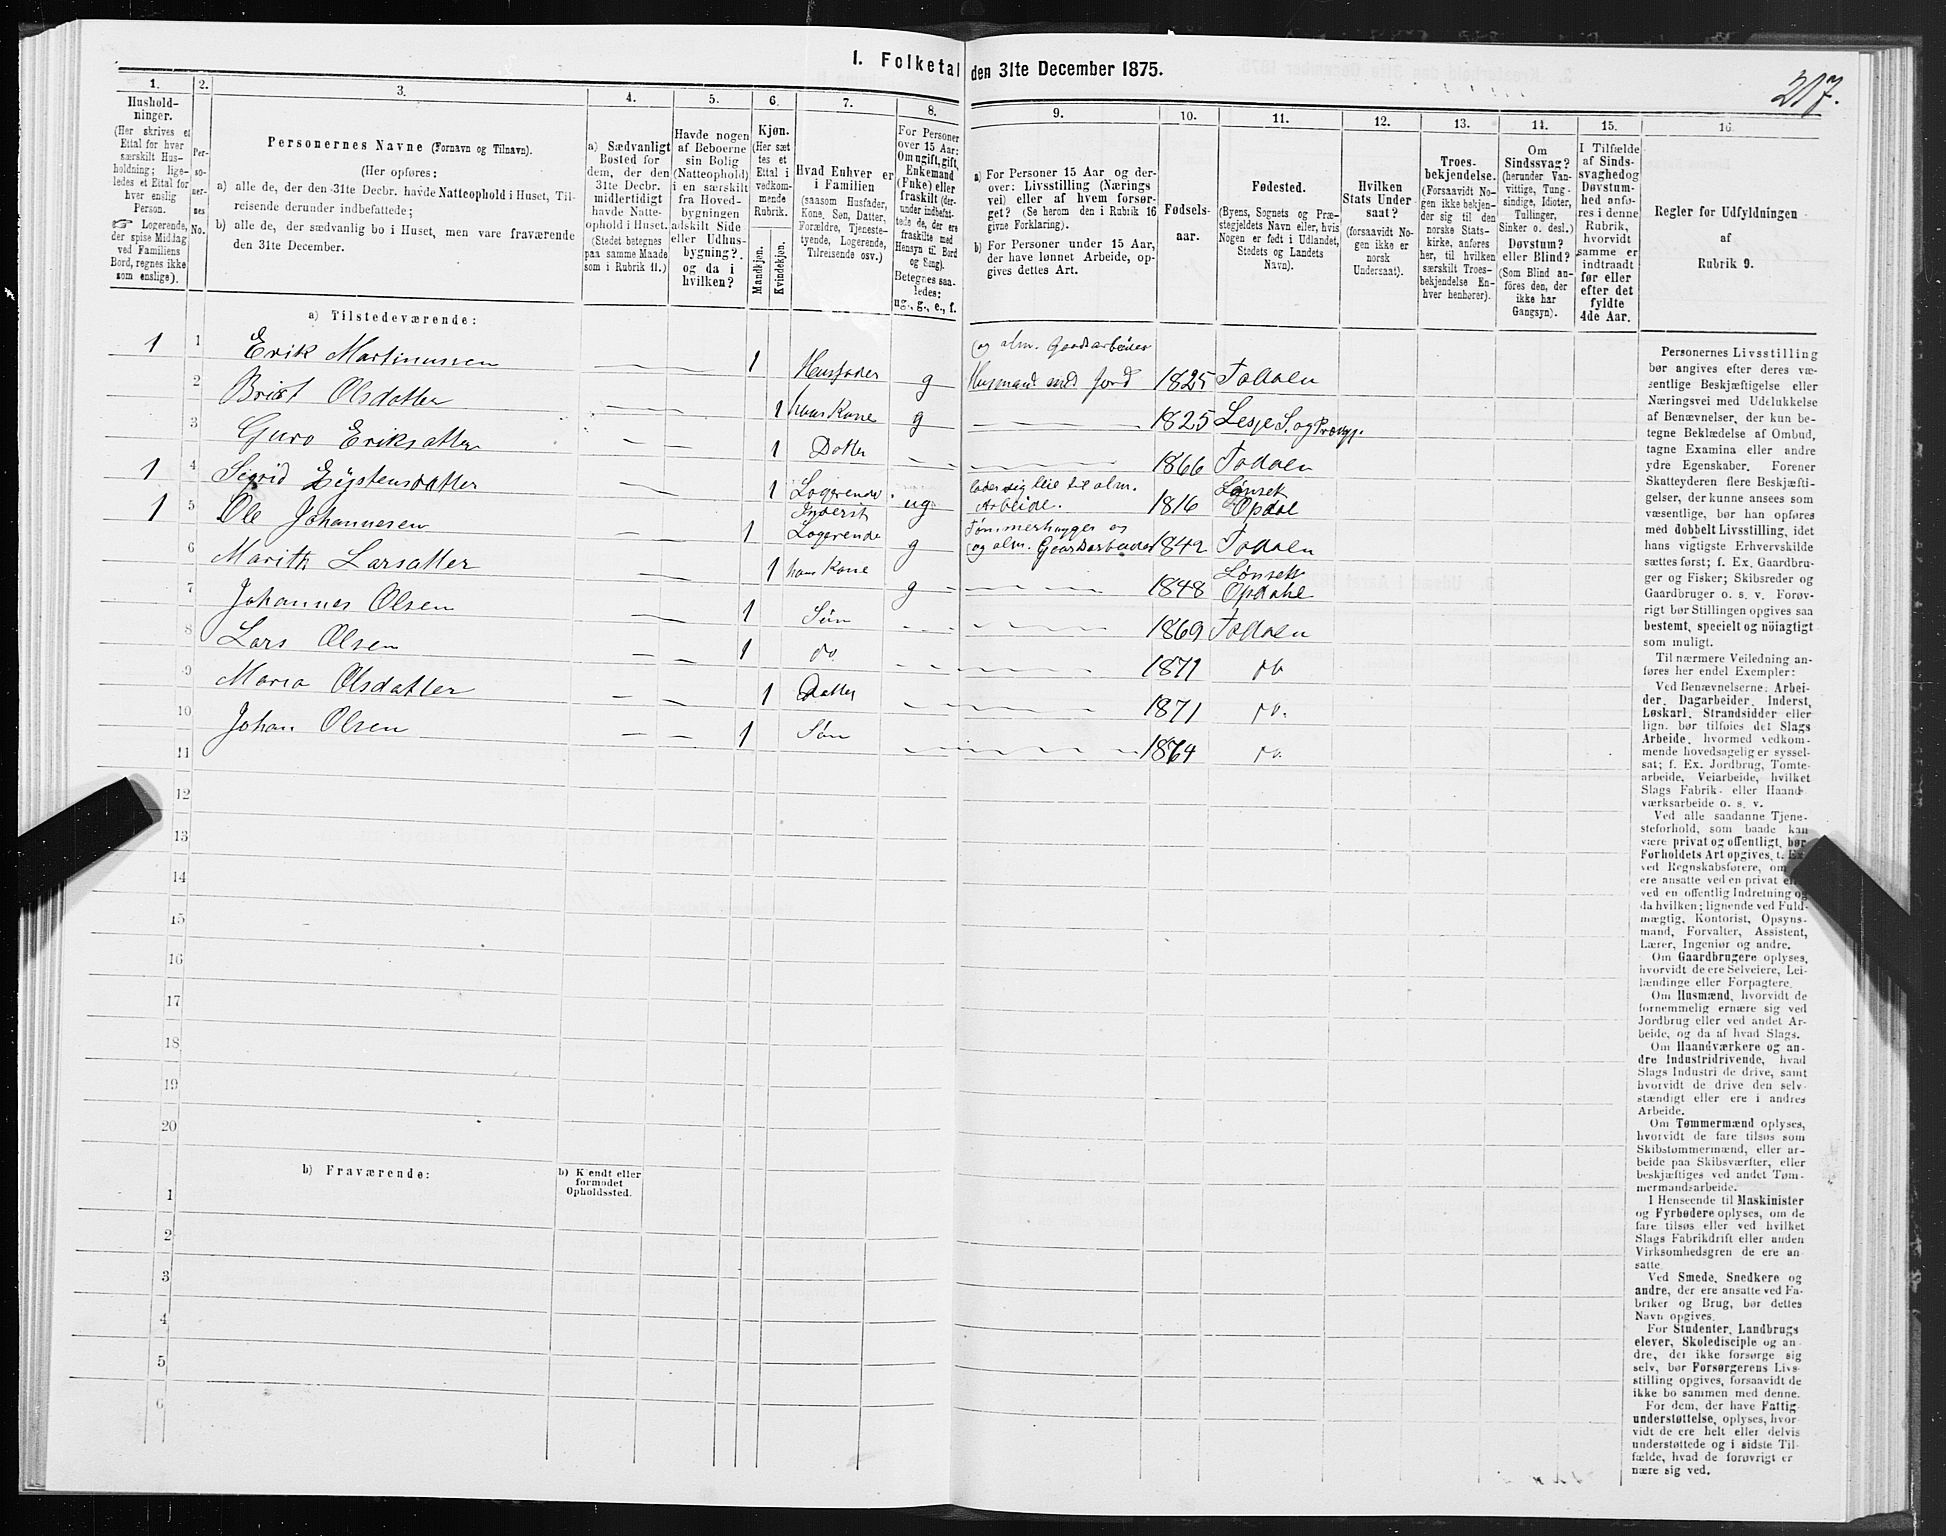 I. Folketal den 31te December 1875.
217.
1.
2.
3.
4.
5.
6.
7.
8.
9.
10.
11.
12.
13.
14.
15.
16.
Hushold-
ninger.
(Her skrives et
Ettal for hver
særskilt Hus-
holdning; lige-
ledes et Ettal for
hver enslig
Person.
☞ Logerende,
der spise Middag
ved Familiens
Bord, regnes ikke
som enslige).
Per-
so-
ner-
nes
No.
Personernes Navne (Fornavn og Tilnavn).
(Her opføres:
a) alle de, der den 31te Decbr. havde Natteophold i Huset, Til-
reisende derunder indbefattede;
b) alle de, der sædvanlig bo i Huset, men vare fraværende
den 31te December.
a) Sædvanligt
Bosted for
dem, der den
31te Decbr.
midlertidigt
havde Natte-
ophold i Huset.
(Stedet betegnes
paa samme Maade
som i Rubrik 11.)
Havde nogen
af Beboerne
sin Bolig
(Natteophold)
i en særskilt
fra Hoved-
bygningen
adskilt Side
eller Udhus-
bygning?
og da i
hvilken?
Kjøn.
(Her sæt
tes et
Ettal i
vedkom-
mende
Rubrik.
Mandkjøn.
Kvindekjøn.
Hvad Enhver er
i Familien
(saasom Husfader,
Kone, Søn, Datter,
Forældre, Tjeneste-
tyende, Logerende,
Tilreisende osv.)
For Personer
over 15 Aar:
Om ugift, gift,
Enkemand
(Enke) eller
fraskilt (der-
under indbefat-
tede de, der ere
fraskilte med
Hensyn til Bord
og Seng).
Betegnes saa-
ledes:
ug., g., e., f.
a) For Personer 15 Aar og der-
over: Livsstilling (Nærings
vei) eller af hvem forsør-
get? (Se herom den i Rubrik 16
givne Forklaring).
b) For Personer under 15 Aar,
der have lønnet Arbeide, op-
gives dettes Art.
Fødsels-
aar.
Fødested.
(Byens, Sognets og Præ-
stegjeldets Navn eller, hvis
Nogen er født i Udlandet,
Stedets og Landets
Navn).
Hvilken
Stats Under
saat?
(forsaavidt No-
gen ikke er
norsk
Undersaat).
Troes-
bekjendelse.
(Forsaavidt No-
gen ikke bekjen-
der sig til den
norske Stats-
kirke, anføres
her, til hvilken
særskilt Troes-
bekjendelse En-
hver henhører).
Om
Sindssvag?
(herunder Van-
vittige, Tung-
sindige, Idioter,
Tullinger,
Sinker o. desl.)
Døvstum?
eller Blind?
(Som Blind an-
føres den, der
ikke har
Gangsyn).
I Tilfælde
af Sinds-
svaghed og
Døvstum-
hed anfø-
res i denne
Rubrik,
hvorvidt
samme er
indtraadt
før eller
efter det
fyldte
4de Aar.
Regler for Udfyldningen
af
Rubrik 9.
a) Tilstedeværende:
og alm. Gaardsarbeider
1 1 Erik Martinussen 1 Husfader g Husmand med Jord 1825 Todalen
2 Brit Olsdatter 1 hans Kone g 1825 Lesje S. og Prægj.
3 Guro Eriksdatter 1 Datter 1866 Todalen
1 4 Sigrid Eystensdatter 1 Logerende ug lader sig leie til alm. Arbeide. 1816 Lønset Opdal
1 5 Ole Johannesen 1 Inderst Logerende g Tømmerhugger og og alm. Gaardsarbeider 1842 Todalen
6 Marith Larsatter 1 hans Kone g 1848 Lønset Opdahl
7 Johannes Olsen 1 Søn 1869 Todalen
8 Lars Olsen 1 do. 1871 do.
9 Maria Olsdatter 1 Datter 1871 do.
10 Johan Olsen 1 Søn 1864 do.
11
12
13
14
15
16
17
18
19
20
b) Fraværende:
b) Kjendt eller
formodet
Opholdssted.
1
2
3
4
5
6
Personernes Livsstilling
bør angives efter deres væ-
sentlige Beskjæftigelse eller
Næringsvei med Udelukkelse
af Benævnelser, der kun be-
tegne Beklædelse af Ombud,
tagne Examina eller andre
ydre Egenskaber. Forener
Skatteyderen flere Beskjæfti-
gelser, der kunne ansees som
væsentlige, bør han opføres
med dobbelt Livsstilling, idet
hans vigtigste Erhvervskilde
sættes først; f. Ex. Gaardbru-
ger og Fisker; Skibsreder og
Gaardbruger o. s. v. Forøv-
rigt bør Stillingen opgives saa
bestemt, specielt og nøiagtigt
som muligt.
Til nærmere Veiledning an-
føres her endel Exempler:
Ved Benævnelserne: Arbei-
der, Dagarbeider, Inderst,
Løskarl, Strandsidder eller
lign. bør tilføies det Slags
Arbeide, hvormed vedkom-
mende hovedsagelig er syssel-
sat; f. Ex. Jordbrug, Tomte-
arbeide, Veiarbeide, hvilket
Slags Fabrik- eller Haand
værksarbeide o. s. v.
Ved alle saadanne Tjene-
steforhold, som baade kan
være privat og offentligt, bør
Forholdets Art opgives, t. Ex
ved Regnskabsførere, om
ere ansatte ved en privat el
ved en offentlig Indretning og
da hvilken; lignende ved Fuld-
mægtig, Kontorist, Opsyns-
mand, Forvalter, Assistent,
Lærer, Ingeniør og andre.
Om Gaardbrugere oplyses,
hvorvidt de ere Selveiere, Lei-
lændinge eller Forpagtere.
Om Husmænd, hvorvidt de
fornemmelig ernære sig ved
Jordbrug eller ved andet Ar-
beide, og da af hvad Slags.
Om Haandværkere og an-
dre Industridrivende, hvad
Slags Industri de drive, samt
hvorvidt de drive den selv-
stændigt eller ere i andres
Arbeide.
Om Tømmermænd oplyses,
hvorvidt de fare tilsøs som
Skibstømmermænd, eller ar-
beide paa Skibsværfter, eller
beskjæftiges ved andet Tøm-
mermandsarbeide.
I Henseende til Maskinister
og Fyrbødere oplyses, om de
fare tilsøs eller ved hvilket
Slags Fabrikdrift eller anden
Virksomhedsgren de ere an-
satte.
Ved Smede, Snedkere og
andre, der ere ansatte ved Fa-
briker og Brug, bør dettes
Navn opgives.
For Studenter, Landbrugs
elever, Skoledisciple og an-
dre, der ikke forsørge sig
selv, bør Forsørgerens Livs-
stilling opgives, forsaavidt de
ikke bo sammen med denne.
For dem, der have Fattig-
understøttelse, oplyses, hvor-
vidt de ere helt eller delvis
understøttede og i sidste Til-
fælde, hvad de forøvrigt er
nære sig ved.